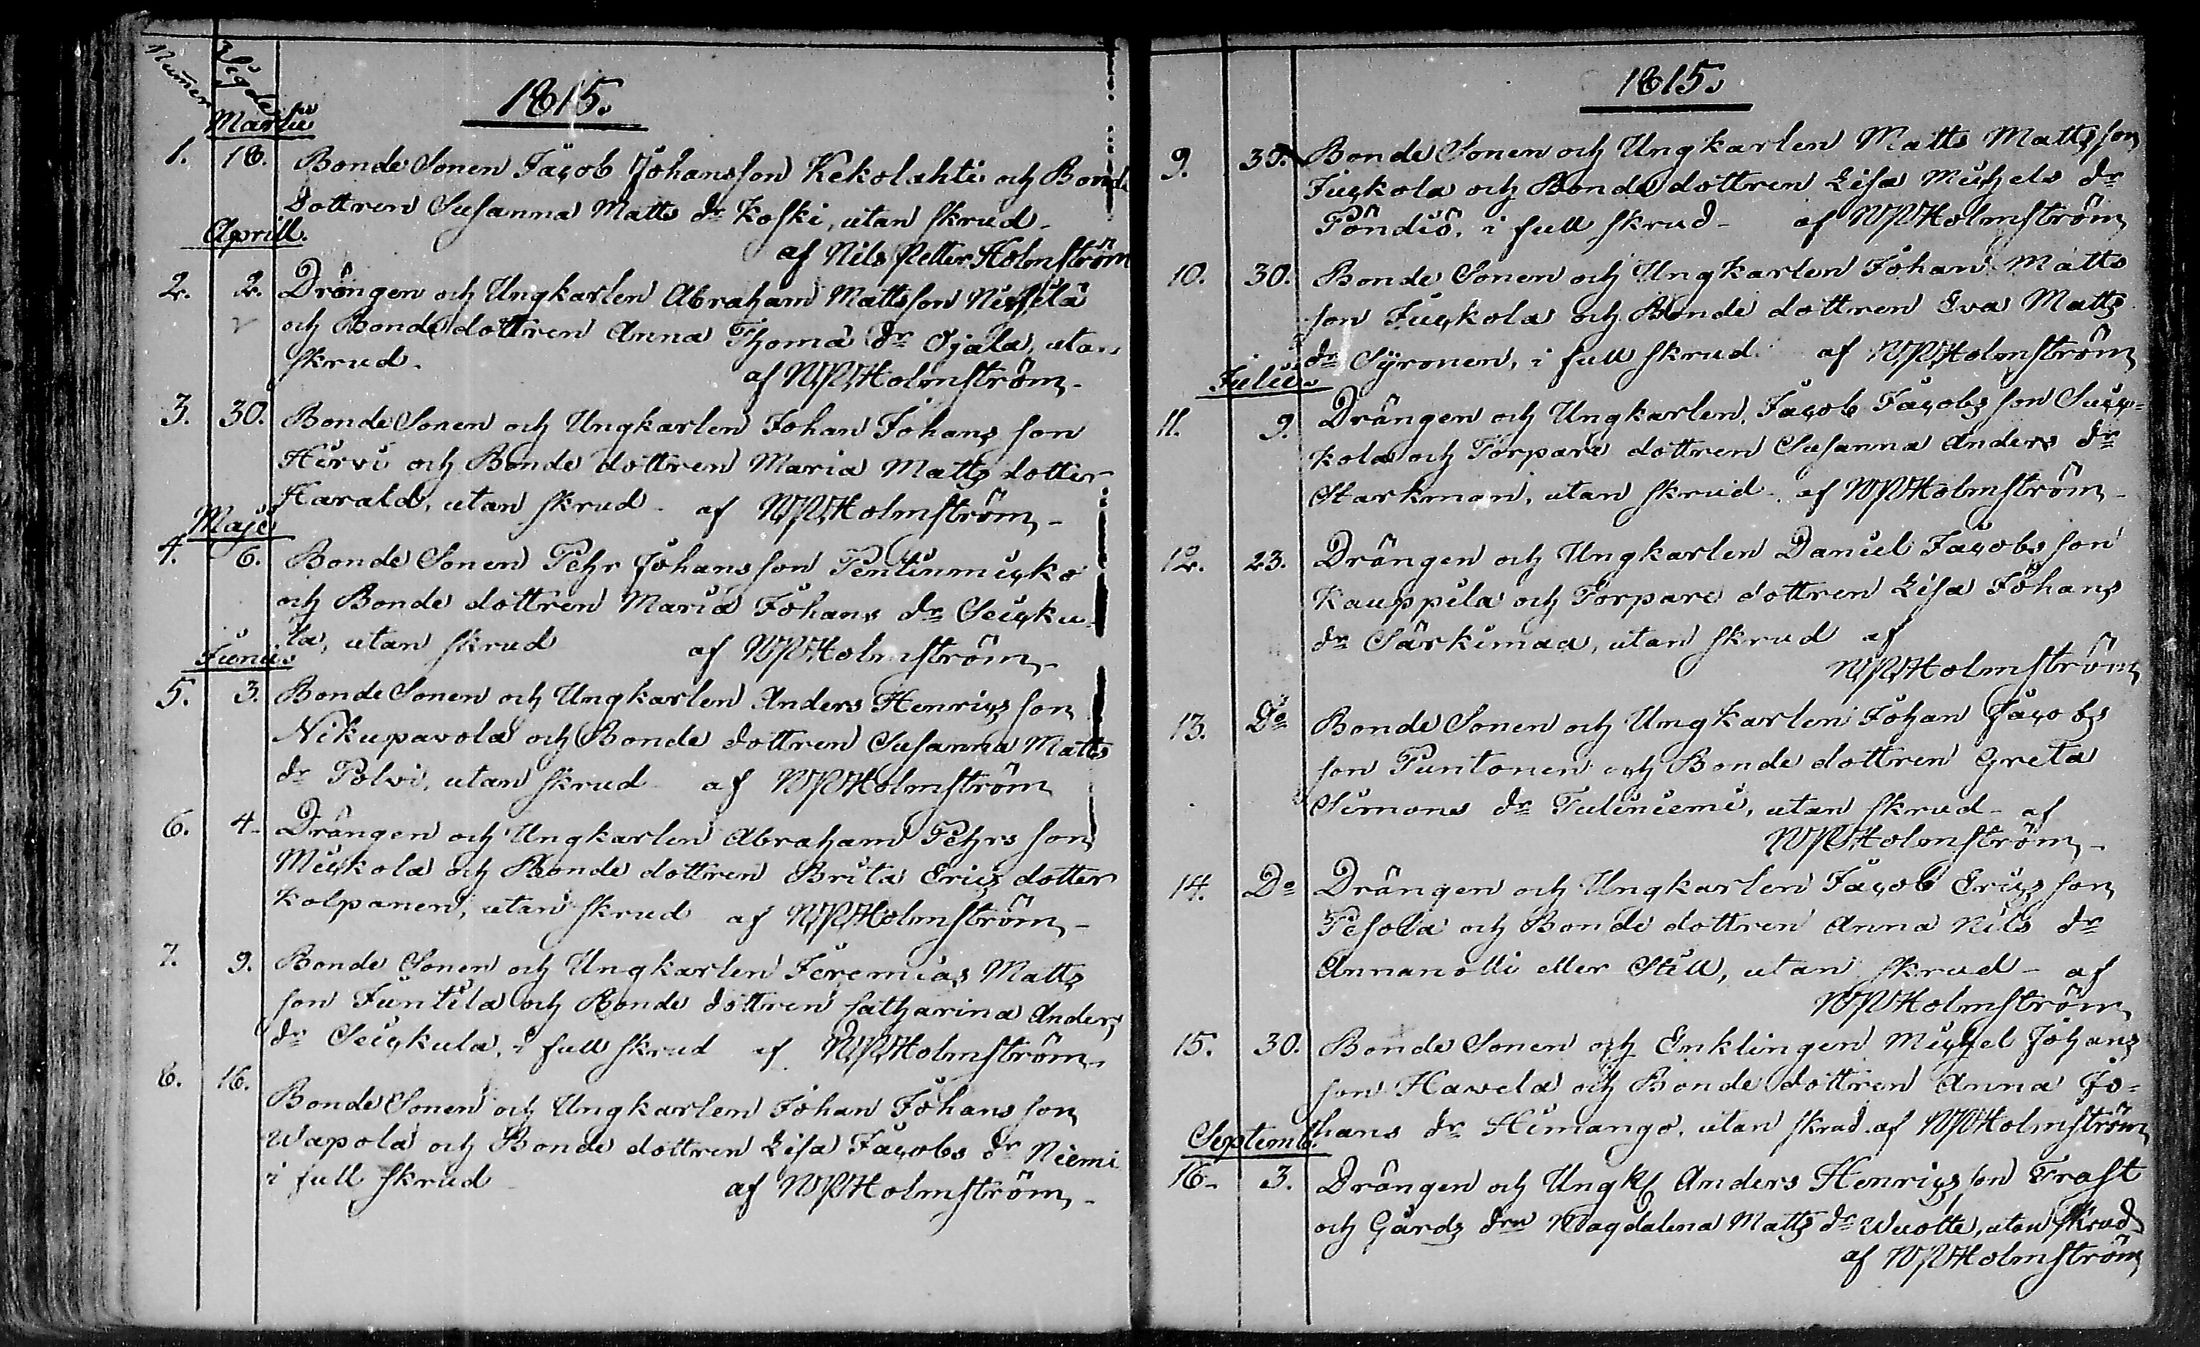 Numer Vigde
1815.
Martii
1. 18. Bonde Sonen Jacob Johansson Kekolahti och Bonde
dottren Susanna Matts dr Koski, utan skrud -
Aprill.
af Nils Petter Holmström
2. 2. Drängen och Ungkarlen Abraham Mattsson Niskela
och Bonde dottren Anna Thoma dr Ojala, utan
skrud. af NPHolmström -
3. 30. Bonde Sonen och Ungkarlen Johan Johans son
Hirvi och Bonde dottren Maria Matts dotter
Harald, utan skrud - af NPHolmström -
Maji
4. 6. Bonde Sonen Pehr Johansson Pentinmicko
och Bonde dottren Maria Johans dr Seicku-
la, utan skrud af NPHolmström -
Junii
5. 3. Bonde Sonen och Ungkarlen Anders Henrics son
Nikupavola och Bonde dottren Susanna Matts
dr Polvi, utan skrud - af NPHolmström
6. 4- Drängen och Ungkarlen Abraham Pehrs son
Mickola och Bonde dottren Brita Erics dotter
Kolpanen, utan skrud af NPHolmström -
7. 9. Bonde Sonen och Ungkarlen Jeremias Matts
son Juntila och Bonde dottren Catharina Anders
dr Seickula, i full skrud af NPHolmström -
8. 16. Bonde Sonen och Ungkarlen Johan Johans son
Wapola och Bonde dottren Lisa Jacobs dr Niemi
i full skrud - af NPHolmström -
1815.
9. Bonde Sonen och Ungkarlen Matts Matts son
Juckola och Bonde dottren Lisa Michels dr
Pöndiö, i full skrud - af NPHolmström
10. 30. Bonde Sonen och Ungkarlen Johan Matts
son Juckola och Bonde dottren Eva Matts
dr Syronen, i full skrud af NPHolmström
Julii
11. 9. Drängen och Ungkarlen Jacob Jacobs son Juc-
kola och Torpare dottren Susanna Anders dr
Starkman, utan skrud - af NPHolmström -
12. 23. Drängen och Ungkarlen Daniel Jacobs son
Kauppila och Torpare dottren Lisa Johans
dr Särkimaa, utan skrud af
NPHolmström
13. Do Bonde Sonen och Ungkarlen Johan Jacobs
son Puntonen och Bonde dottren Greta
Simons dr Tuliniemi, utan skrud - af
NPHolmström -
14. Do Drängen och Ungkarlen Jacob Erics son
Pesola och Bonde dottren Anna Nils dr
Annanolli eller Still, utan skrud - af
NPHolmström
15. 30. Bonde Sonen och Enklingen Michel Johans
son Hawela och Bonde dottren Anna Jo-
hans dr Himango, utan skrud af NPHolmström
Septemb.
16- 3. Drängen och Ungk. Anders Henrics son Frast
och Gårds drn Magdalena Matts dr Wuotte, utan skrud
af NPHolmström